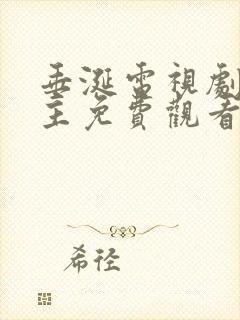 垂涎電視劇
主免費觀看
希徑